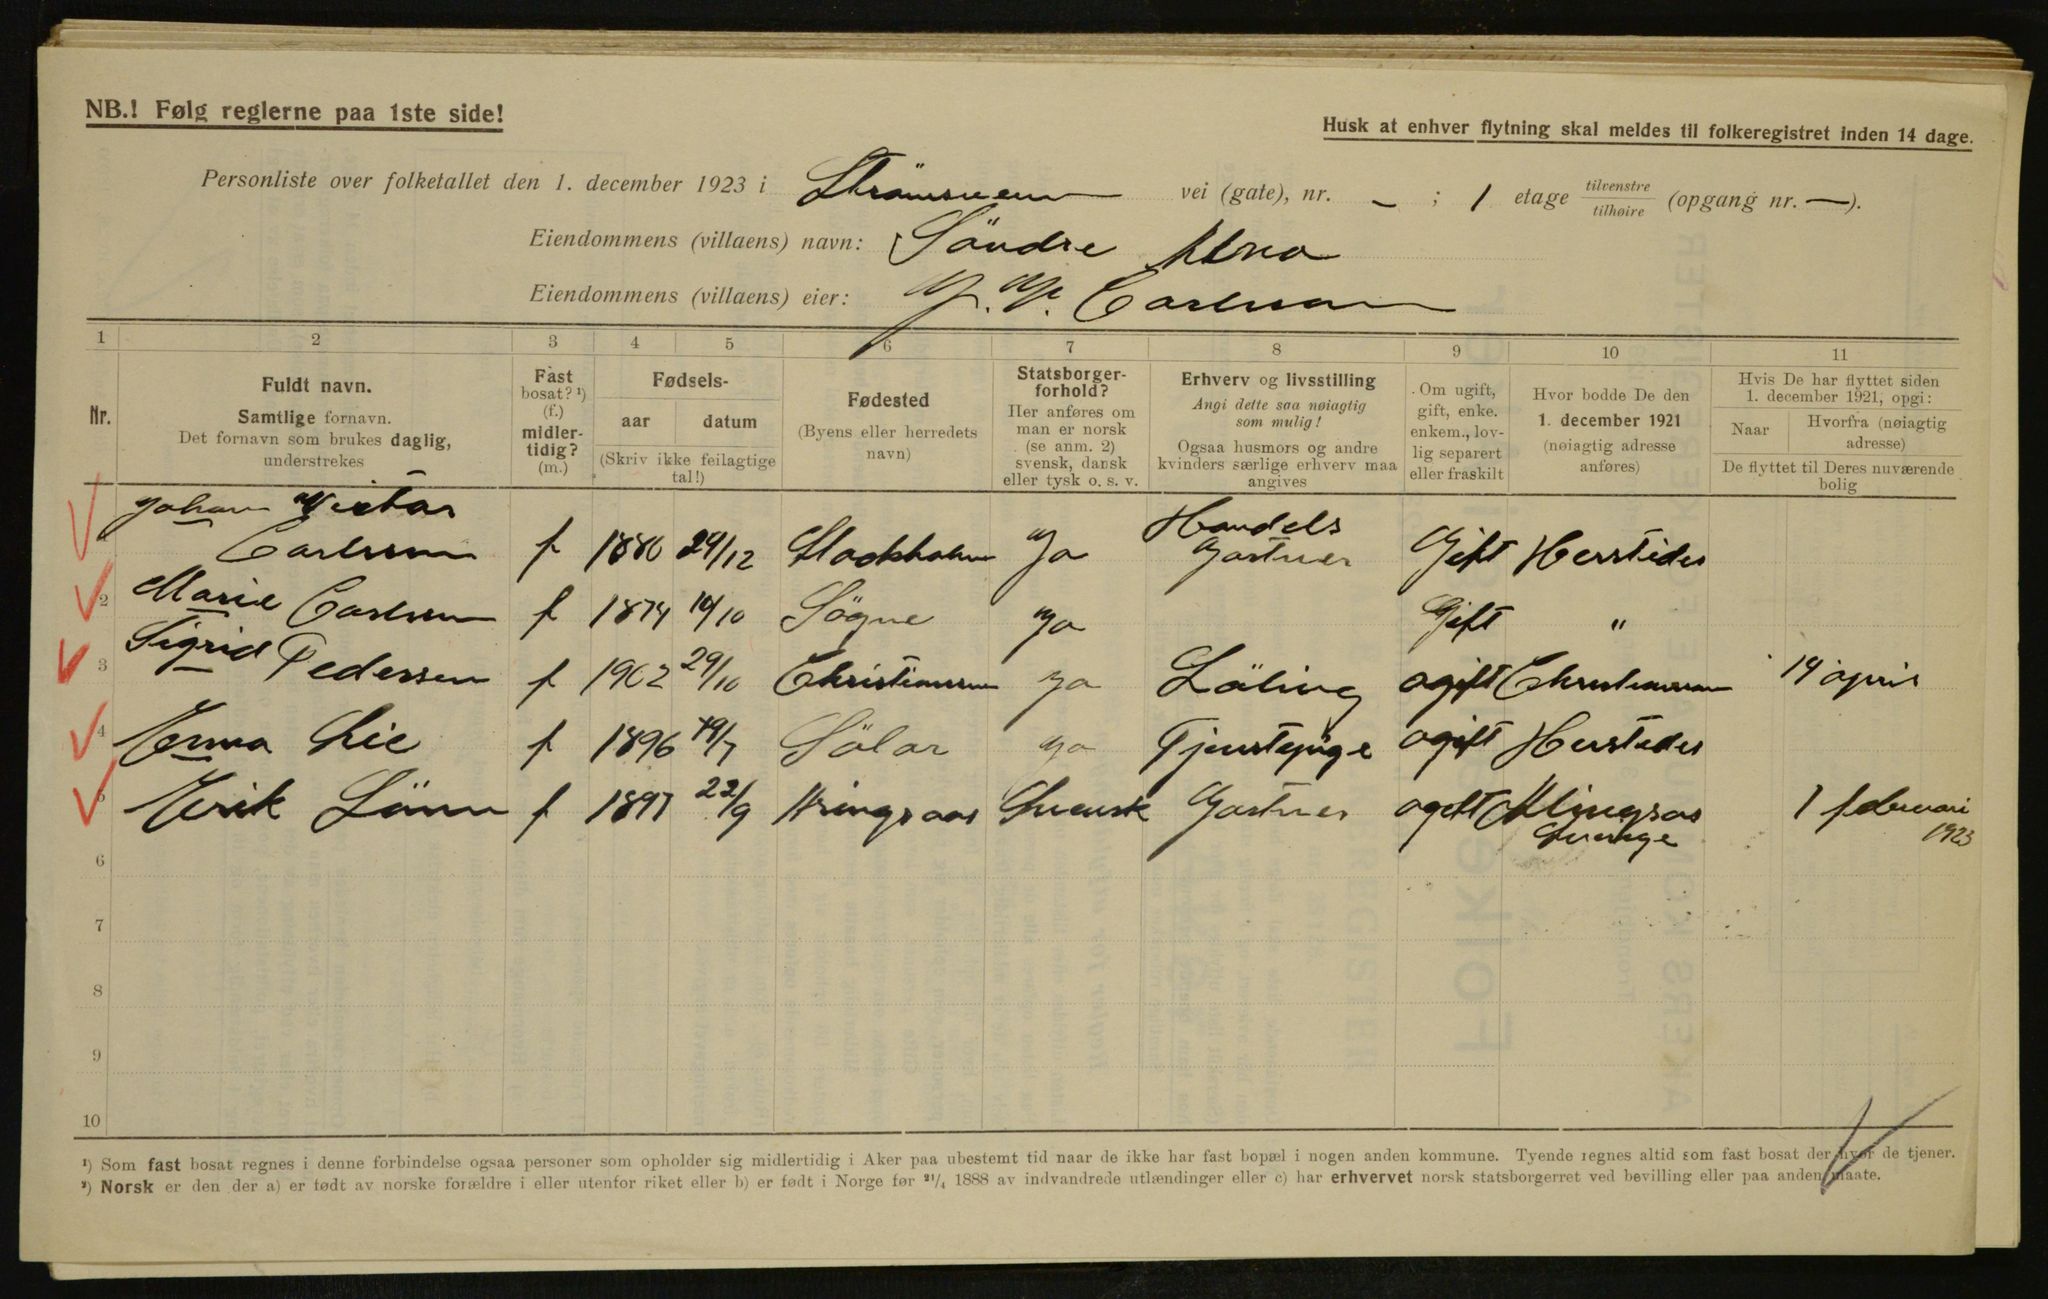 NB.! Følg reglerne paa 1ste side!
Husk at enhver flytning skal meldes til folkeregistret inden 14 dage.
Personliste over folketallet den 1. december 1923 i Strömsveien vei (gate), nr. – ; 1 etage tilvenstre tilhøire (opgang nr. —).
Eiendommens (villaens) navn: Söndre Alna
Eiendommens (villaens) eier: Carlsson
1 2 3 4 5 6 7 8 9 10 11
Nr.
Fuldt navn.
Samtlige fornavn.
Det fornavn som brukes daglig,
understrekes
Fast
bosat? ¹)
(f.)
midler-
tidig?
(m.)
Fødsels-
aar datum
(Skriv ikke feilagtige
tal!)
Fødested
(Byens eller herredets
navn)
Statsborger-
forhold?
Her anføres om
man er norsk
(se anm. 2)
svensk, dansk
eller tysk o. s. v.
Erhverv og livsstilling
Angi dette saa nøiagtig
som mulig!
Ogsaa husmors og andre
kvinders særlige erhverv maa
angives
Om ugift,
gift, enke.
enkem., lov-
lig separert
eller fraskilt
Hvor bodde De den
1. december 1921
(nøiagtig adresse
anføres)
Hvis De har flyttet siden
1. december 1921, opgi:
Naar Hvorfra (nøiagtig
adresse)
De flyttet til Deres nuværende
bolig
Johan Victor Handels
Carlsson f 1880 29/12 Stockholm Ja Gartner Gift Herstedes
2 Marie Carlsson f 1874 10/10 Sögne Ja Gift "
3 Sigrid Pedersen f 1902 29/10 Christianssun ja Läling ogift Christianssun 14 april
4 Erna Lie f 1896 19/7 Sölar ja Tjenstepige ogift Herstedes
5 Erik Lönn f 1897 22/9 Svensk Gartner ogift Alingsos 1 februari
Sverige 1923
6
7
8
9
10
¹) Som fast bosat regnes i denne forbindelse ogsaa personer som opholder sig midlertidig i Aker paa ubestemt tid naar de ikke har fast bopæl i nogen anden kommune. Tyende regnes altid som fast bosat der hvor de tjener.
²) Norsk er den der a) er født av norske forældre i eller utenfor riket eller b) er født i Norge før ²¹/₄ 1888 av indvandrede utlændinger eller c) har erhvervet norsk statsborgerret ved bevilling eller paa anden maate.